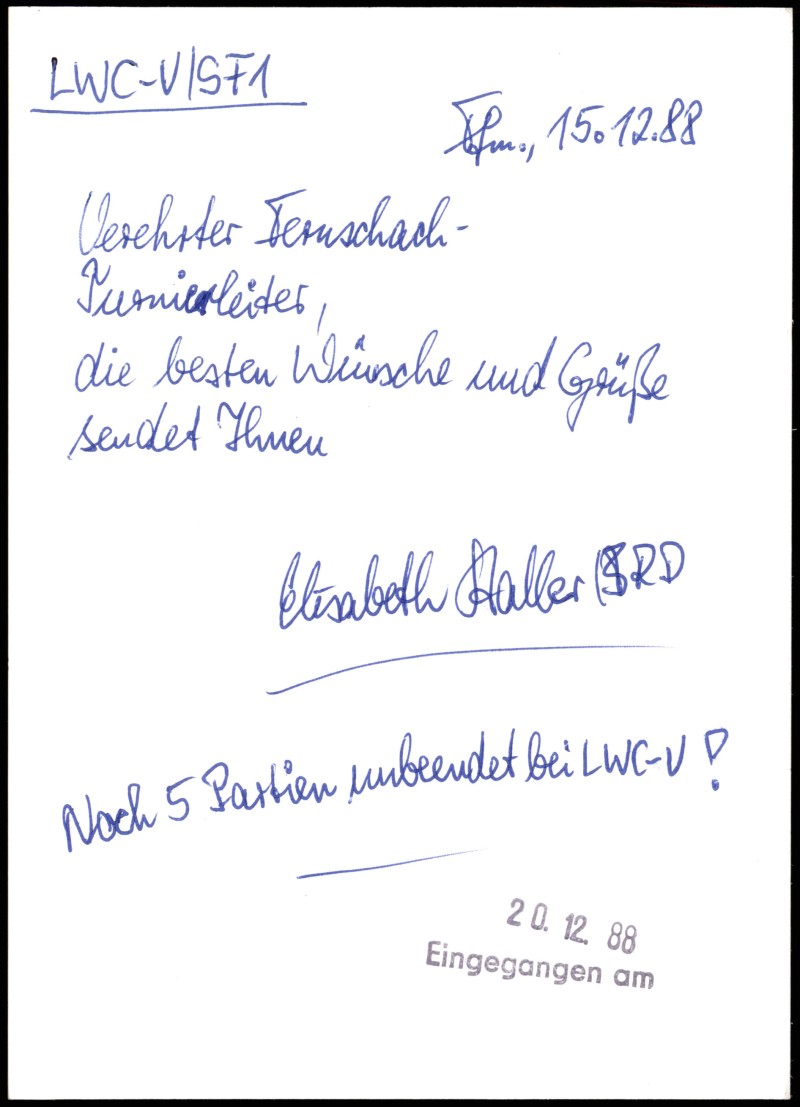 LWC-V/SF1
Ffm., 15.12.88
Verehrter Fernschach-
Turnierleiter,
die besten Wünsche und Grüße
sendet Ihnen
Elisabeth Haller/BRD
Noch 5 Partien unbeendet bei LWC-V!
20. 12. 88
Eingegangen am